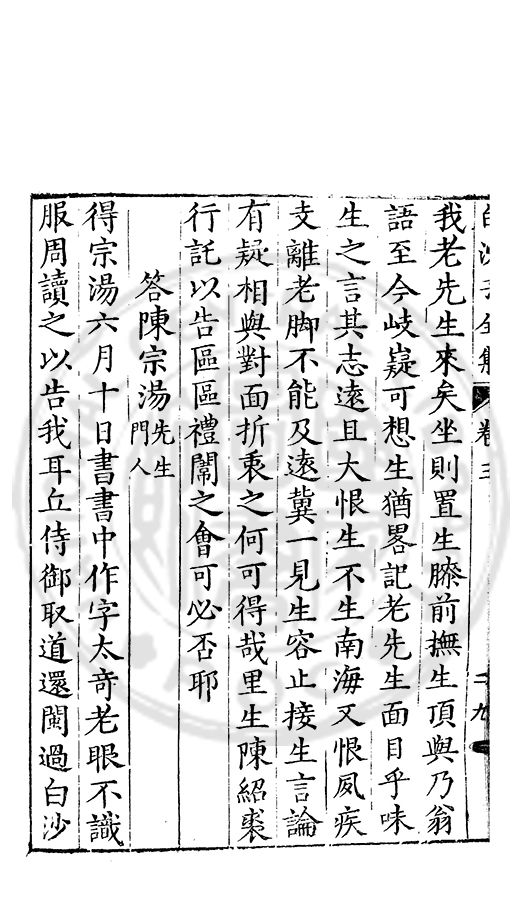 白沙子全集 卷三 二九
我老先生來矣坐則置生膝前撫生頂與乃翁
語至今岐嶷可想生猶畧記老先生面目乎味
生之言其志遠且大恨生不生南海又恨夙疾
支離老脚不能及遠冀一見生容止接生言論
有疑相與對面折衷之何可得哉里生陳紹裘
行託以告區區禮闈之會可必否耶
答陳宗湯先生門人
得宗湯六月十日書書中作字太奇老眼不識
服周讀之以告我耳丘侍御取道還閩過白沙